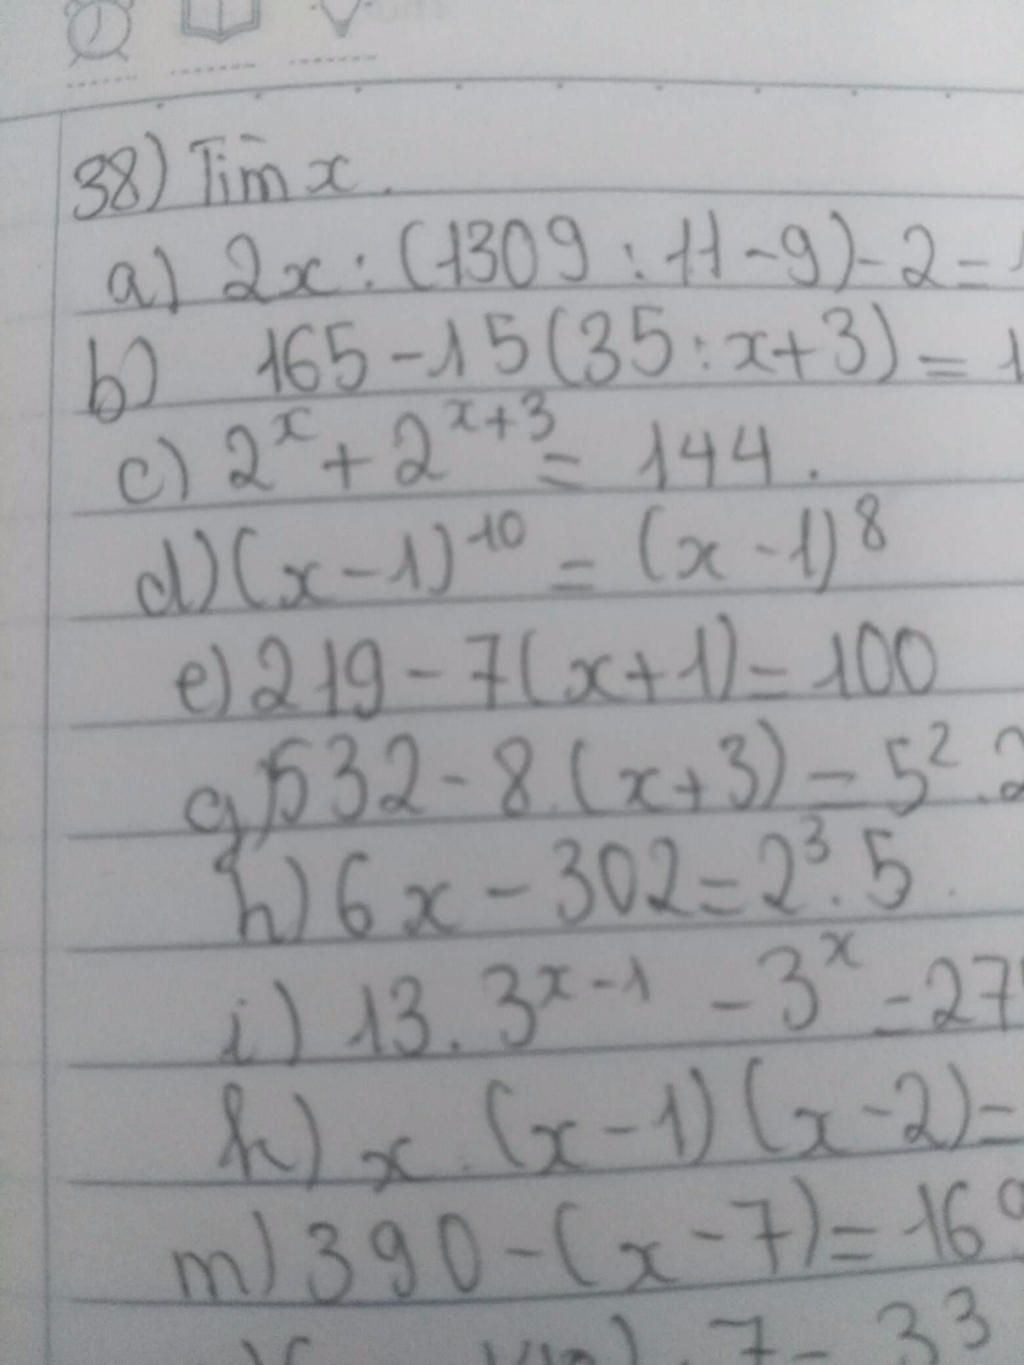 38) Tìm x.
a) 2x : (1309 : 11 - 9) - 2 =
b) 165 - 15(35 : x + 3) = 1
c) 2^x + 2^{x+3} = 144.
d) (x - 1)^{10} = (x - 1)^8
e) 219 - 7(x + 1) = 100
g) 532 - 8.(x + 3) = 5^2.2
h) 6x - 302 = 2^3.5
i) 13.3^{x-1} - 3^x = 27
k) x.(x - 1)(x - 2) =
m) 390 - (x - 7) = 169
7 = 33